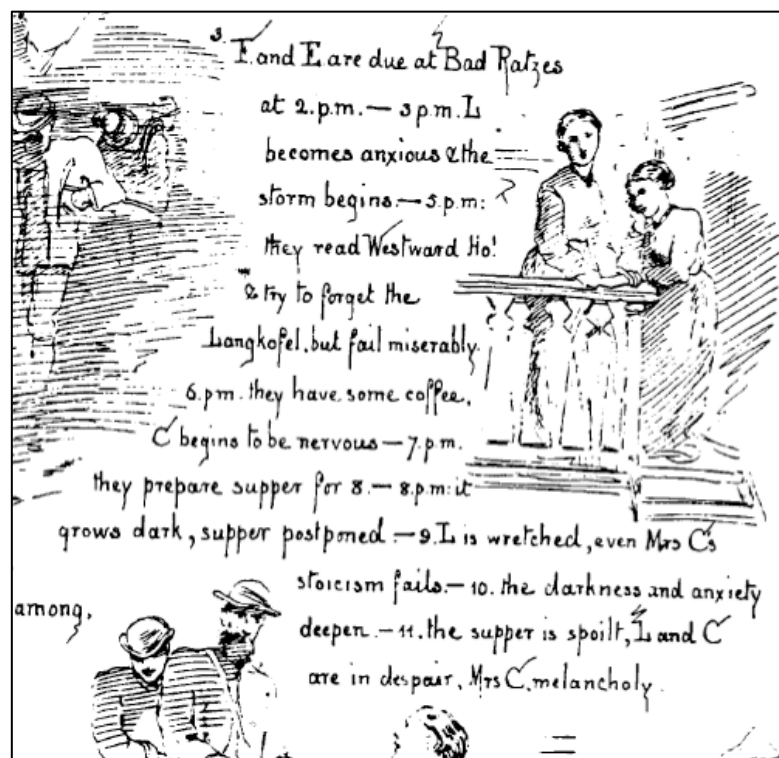 3. F. and E are due at Bad Ratzes
at 2.p.m. — 3 p.m. L
becomes anxious & the
storm begins. — 5.p.m:
they read Westward Ho!
& try to forget the
Langkofel, but fail miserably.
6.pm. they have some coffee,
C begins to be nervous — 7.p.m.
they prepare supper for 8. — 8.p.m: it
grows dark, supper postponed — 9. L is wretched, even Mrs C's
stoicism fails. — 10. the darkness and anxiety
among,
deepen. — 11. the supper is spoilt, L and C
are in despair, Mrs C. melancholy.